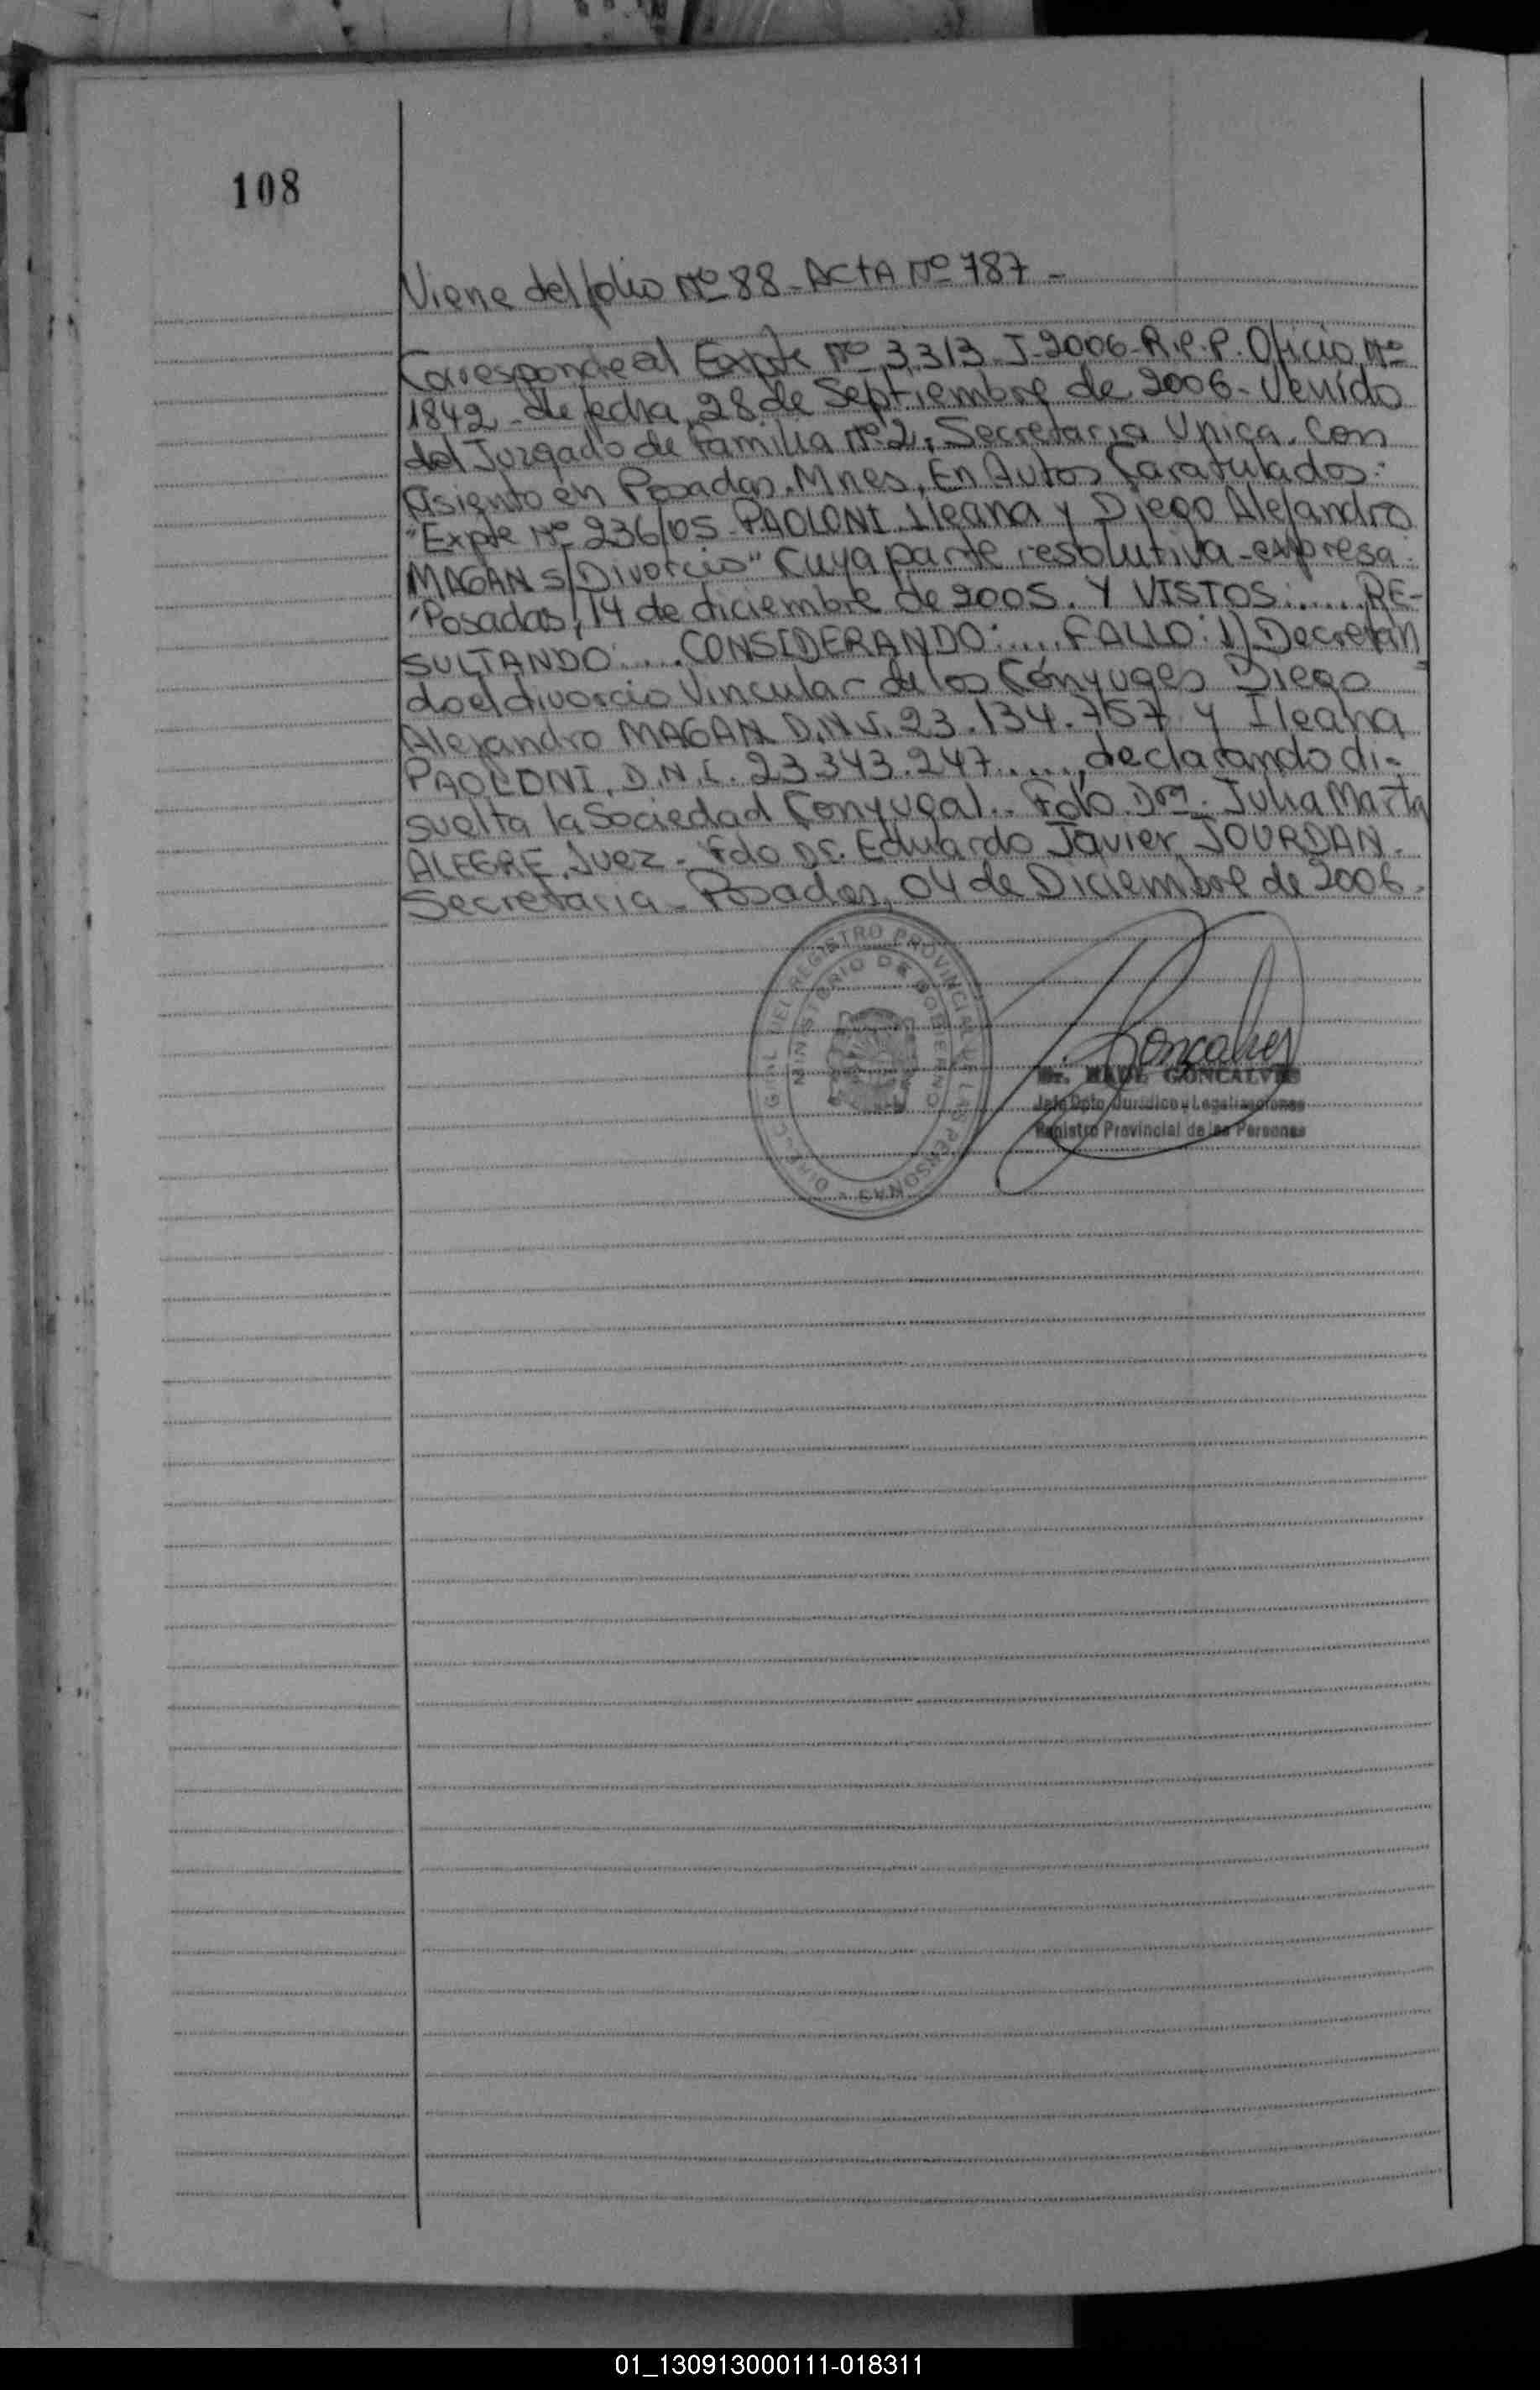 108
Viene del folio Nº 88 - ACTA Nº 787 -
Corresponde al Expte Nº 3.313. J-2006-R.P.P. Oficio Nº
1842 - de fecha, 28 de Septiembre de 2006 - Venido
del Juzgado de Familia Nº 2, Secretaria Unica. Con
asiento en Posadas. Mnes, En Autos Caratulados:
"Expte Nº 236/05 - PAOLONI Ileana y Diego Alejandro
MAGAN S/Divorcio" Cuya parte resolutiva - expresa:
"Posadas, 14 de diciembre de 2005. Y VISTOS:..... RE-
SULTANDO:.... CONSIDERANDO:.... FALLO: 1) Decretan
do el divorcio Vincular de los Cónyuges Diego
Alejandro MAGAN D.N.I. 23.134.757 y Ileana
PAOLONI, D.N.I. 23.343.247....., declarando di-
suelta la Sociedad Conyugal.. Fdo. Dra. Julia Marta
ALEGRE, Juez - Fdo Dr. Eduardo Javier JOURDAN.
Secretaria - Posadas, 04 de Diciembre de 2006.
REGISTRO PROVINCIAL DE LAS PERSONAS
MINISTERIO DE GOBIERNO
Goncalves
Dr. RAUL GONCALVES
Jefe Dpto. Juridico y Legalizaciones
Registro Provincial de las Personas
01_130913000111-018311